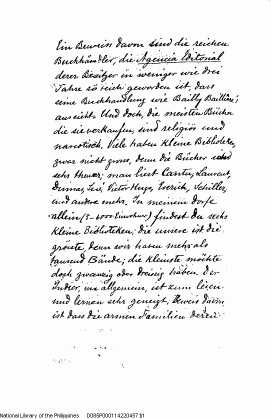 Ein Beweiss davon sind die reichen
Buchhändler, die Agencia Editorial
derer Besitzer in weniger wie drei
Jahre so reich geworden ist, dass
seine Buchhandlung wie Bailly Bailliere
aussieht. Und doch, die meisten Bücher
die sie verkaufen, sind religiös und
narcotisch. Viele haben kleine Bibliotheken,
zwar nicht gross, denn die Bücher sind
sehr theuer; man liest Cantu, Laurent,
Dumas, Sue, Victor Hugo, Escrich, Schiller,
und andere mehr. In meinem Dorfe
allein (5-6000 Einwohner) findest du sechs
kleine Bibliotheken; die unsere ist die
grösste, denn wir haben mehr als
tausend Bände; die kleinste möchte
doch zwanzig oder dreissig haben. Der
Indier, im allgemein, ist zum lesen
und lernen sehr geneigt, Beweis davon
ist dass die armen Familien deren
National Library of the Philippines